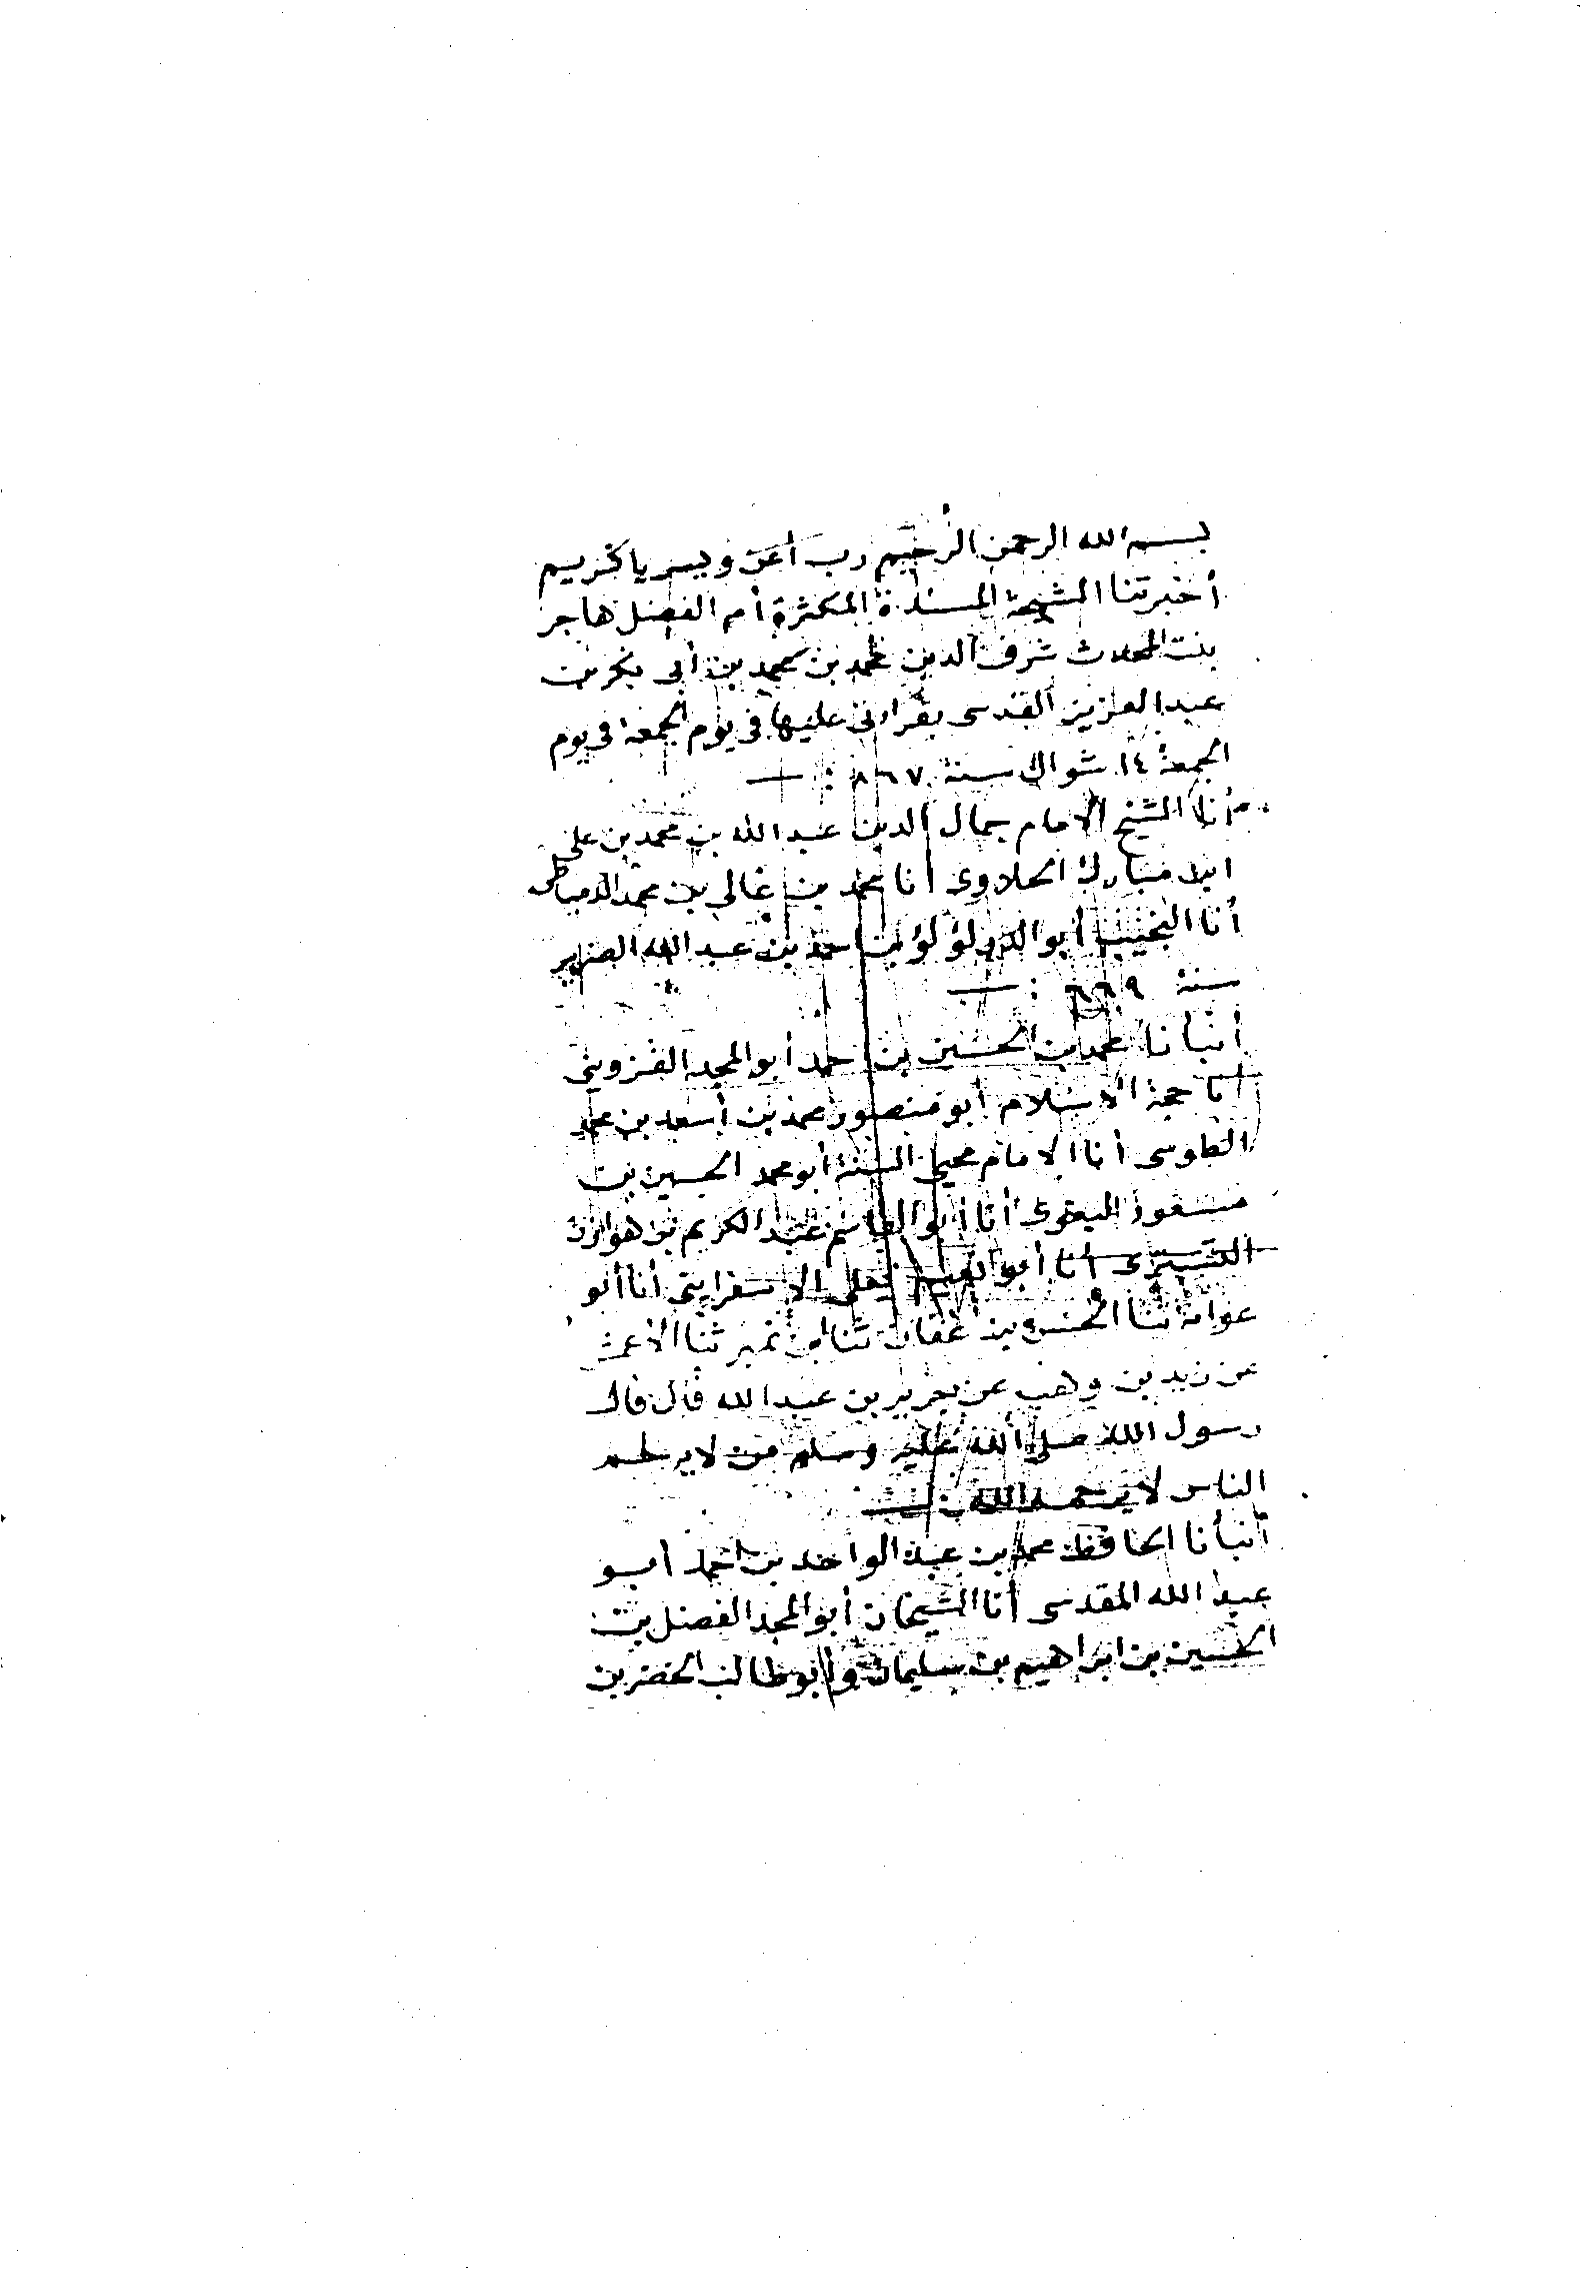 بسم الله الرحمن الرحيم رب أعن ويسر يا كريم
أخبرتنا الشيخة المسندة المكثرة أم الفضل هاجر
بنت المحدث شرف الدين محمد بن محمد بن أبى بكر بن
عبد العزيز القدسى بقراءتى عليها فى يوم الجمعة فى يوم
الجمعة ١٤ شوال سنة ٨٦٧ :
أنا الشيخ الامام جمال الدين عبد الله بن محمد بن على
ابن مبارك الحلاوى أنا محمد بن غالى بن محمد الدمياطى
أنا النجيب أبو الدر لؤلؤ بن احمد بن عبد الله الضرير
سنة ٦٦٩ :
أنبأنا محمد بن الحسين بن احمد أبو المجد القزوينى
أنا حجة الاسلام أبو منصور محمد بن أسعد بن محمد
الطوسى أنا الامام محيى السنة أبو محمد الحسين بن
مسعود البغوى أنا أبو القاسم عبد الكريم بن هوازن
القشيرى أنا أبو نعيم الاسفراينى أنا أبو
عوانة ثنا الحسن بن عفان ثنا ابن نمير ثنا الأعمش
عن زيد بن وهب عن جرير بن عبد الله قال قال
رسول الله صلى الله عليه وسلم من لا يرحم
الناس لا يرحمه الله :
أنبأنا الحافظ محمد بن عبد الواحد بن احمد أبو
عبد الله المقدسى أنا الشيخان أبو المجد الفضل بن
الحسين بن ابراهيم بن سليمان وأبو طالب الخضر بن